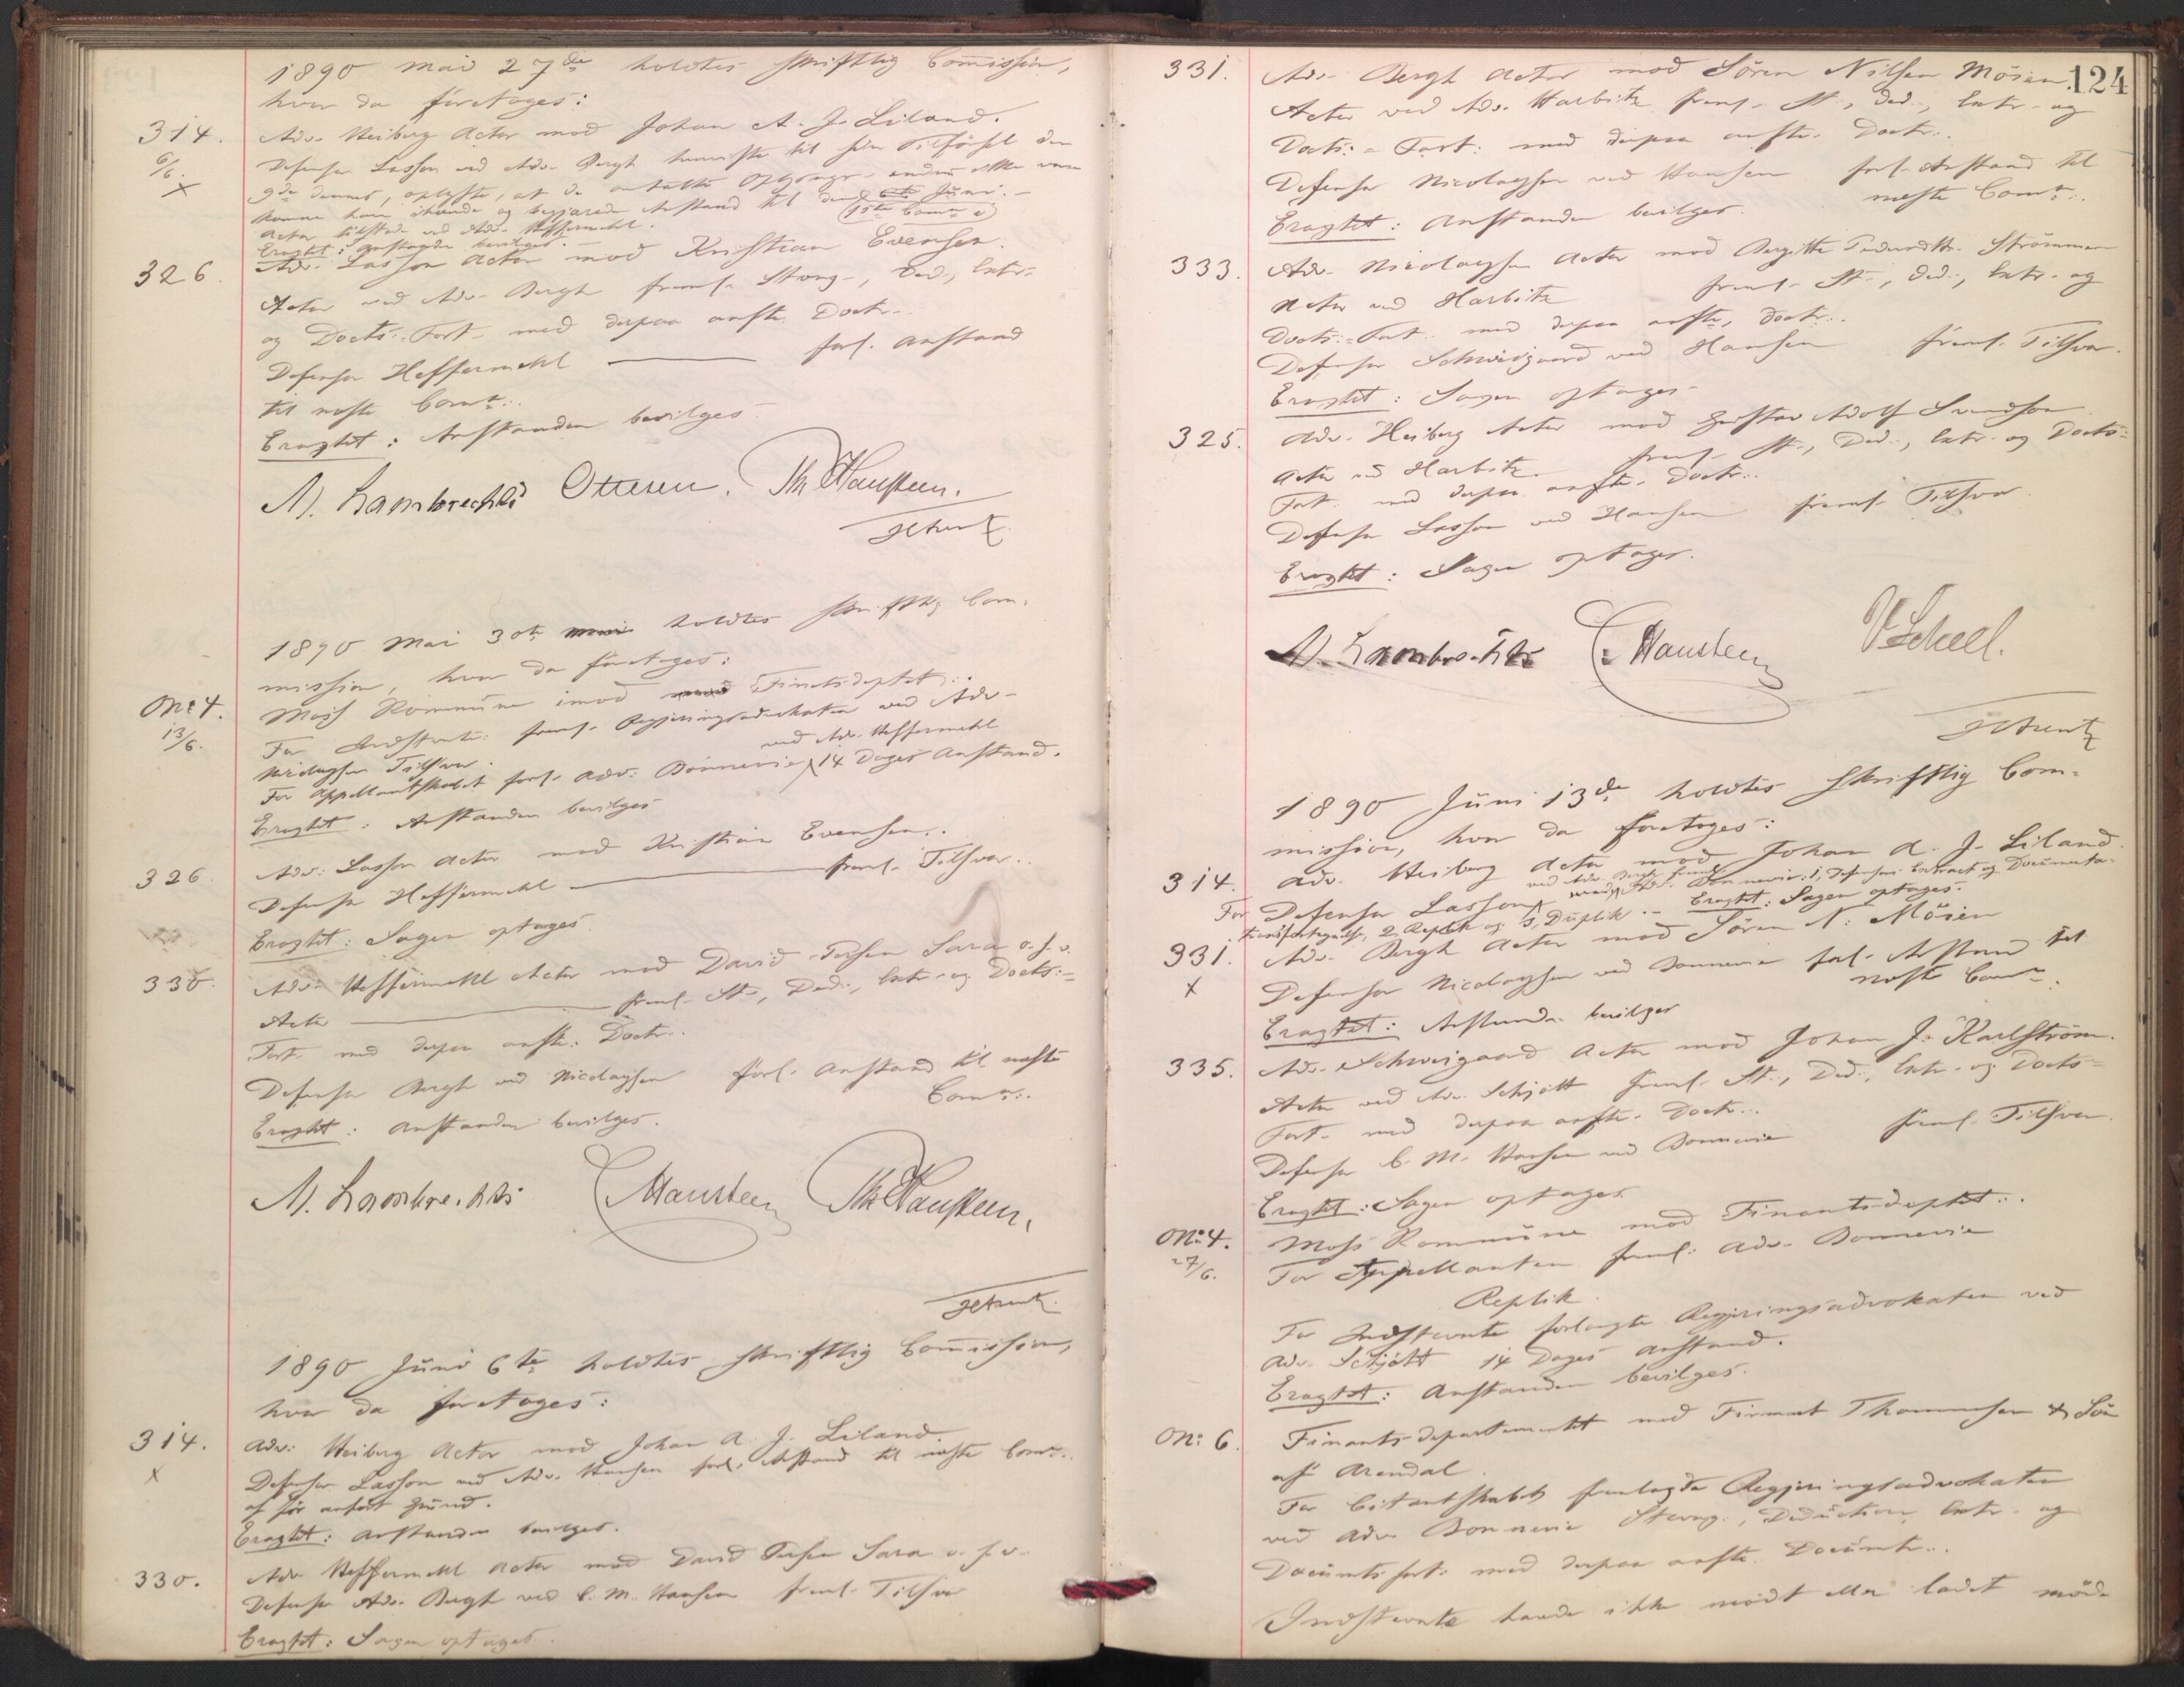 1890 Mai 27de holdtes skriftlig Com̄ission,
hvor da foretoges:
314. Adv. Heiberg Actor mod Johan A. J. Liland.
6/6. Defensor Lasson ved Adv. Bergh henviste til sin Tilførsel den
X 9de dennes, oplyste, at de antalte endnu ikke var
kom̄ne ham ihænde og begjærede Anstand til den 6te Juni.
1ste Comn i
Actor tilstede ved Adv. Heffermehl.
Eragtet: Anstanden bevilges.
326. Adv. Lasson Actor mod Kristian Evensen.
Actor ved Adv. Bergh freml. Stevng., Ded., Extr.
og Docts.-Fort. med derpaa anfte. Doctr..
Defensor Heffermehl forl. Anstand
til næste Comn..
Eragtet: Anstanden bevilges.
M. Lambrechts Ottesen. Th. Hansteen.
1890 Mai 30te holdtes skriftlig Com-
mission, hvor da foretoges:
No: 4. Moss Kommune imod Finantsdeptet.
13/6. For Indstevnte freml. Regjeringsadvokaten ved Adv.
Nicolaysen Tilsvar.
ved Adv. Heffermehl
For Appellantskabet forl. Adv. Bonnevie 14 Dages Anstand.
Eragtet: Anstanden bevilges
326. Adv. Lasson Actor mod Kristian Evensen.
Defensor Heffermehl freml. Tilsvar..
Eragtet: Sagen optages.
330. Adv. Heffermehl Actor mod David Sara o. s. v.
Actor freml. St., Ded., Extr. og Docts.-
Fort. med derpaa anfte. Doctr..
Defensor Bergh ved Nicolaysen forl. Anstand til næste
Comn..
Eragtet: Anstanden bevilges.
M. Lambrechts C. Hansteen Th. Hansteen.
1890 Juni 6te holdtes skriftlig Com̄ission,
hvor da foretoges:
314. Adv. Heiberg Actor mod Johan A. J. Liland.
X Defensor Lasson ved Adv. Hansen forl. Anstand til næste Comn..
af før anført Grund.
Eragtet: Anstanden bevilges.
330. Adv. Heffermehl Actor mod David Sara o. s. v.
Defensor Adv. Bergh ved C. M. Hansen freml. Tilsvar
Eragtet: Sagen optages.
124
331. Adv. Bergh Actor mod Søren Nilsen Mösien.
Actor ved Adv. Harbitz freml. St., Ded., Extr. og
Docts.-Fort. med derpaa anfte. Doctr..
Defensor Nicolaysen ved Hansen forl. Anstand til
næste Comn..
Eragtet: Anstanden bevilges.
333. Adv. Nicolaysen Actor mod Bergitte Strömmen
Actor ved Harbitz freml. St., Ded., Extr. og
Docts.-Fort. med derpaa anfte. Doctr..
Defensor Schweigaard ved Hansen freml. Tilsvar.
Eragtet: Sagen optages
325. Adv. Heiberg Actor mod Gustav Adolf Svendsen
Actor ved Harbitz freml. St., Ded., Extr. og Docts.-
Fort. med derpaa anfte. Doctr..
Defensor Lasson ved Hansen freml. Tilsvar
Eragtet: Sagen optages.
M. Lambrechts C. Hansteen V. Scheel.
1890 Juni 13de holdtes skriftlig Com-
mission, hvor da foretoges:
314. Adv. Heiberg Actor mod Johan A. J. Liland.
ved Adv. Bergh freml.
For Defensor Lasson Adv. Bonnevie: 1, Defensors Extract og Documenta-
tionsfortegnelse, 2, Replik og 3, Duplik. – Eragtet: Sagen optages.
331. Adv. Bergh Actor mod Søren N. Mösien
X Defensor Nicolaysen ved Bonnevie forl. Anstand til
næste Comn.
Eragtet: Anstanden bevilges
335. Adv. Schweigaard Actor mod Johan J. Karlström.
Actor ved Adv. Schjött freml. St., Ded., Extr. og Docts.-
Fort. med derpaa anfte. Doctr..
Defensor C. M. Hansen ved Bonnevie freml. Tilsvar.
Eragtet: Sagen optages.
No: 4. Moss Kommune mod Finantsdeptet..
27/6. For Appellanten freml. Adv. Bonnevie
Replik.
For Indstevnte forlangte Regjeringsadvokaten ved
Adv. Schjött 14 Dages Anstand.
Eragtet: Anstanden bevilges.
No: 6. Finants-departementet mod Firmaet Thommesen & Sön
af Arendal.
For Citantskabet fremlagde Regjeringsadvokaten
ved Adv. Bonnevie Stevng., Deduction, Extr. og
Documtsfort. med derpaa anfte. Documtr..
Indstevnte havde ikke mödt eller ladet möde